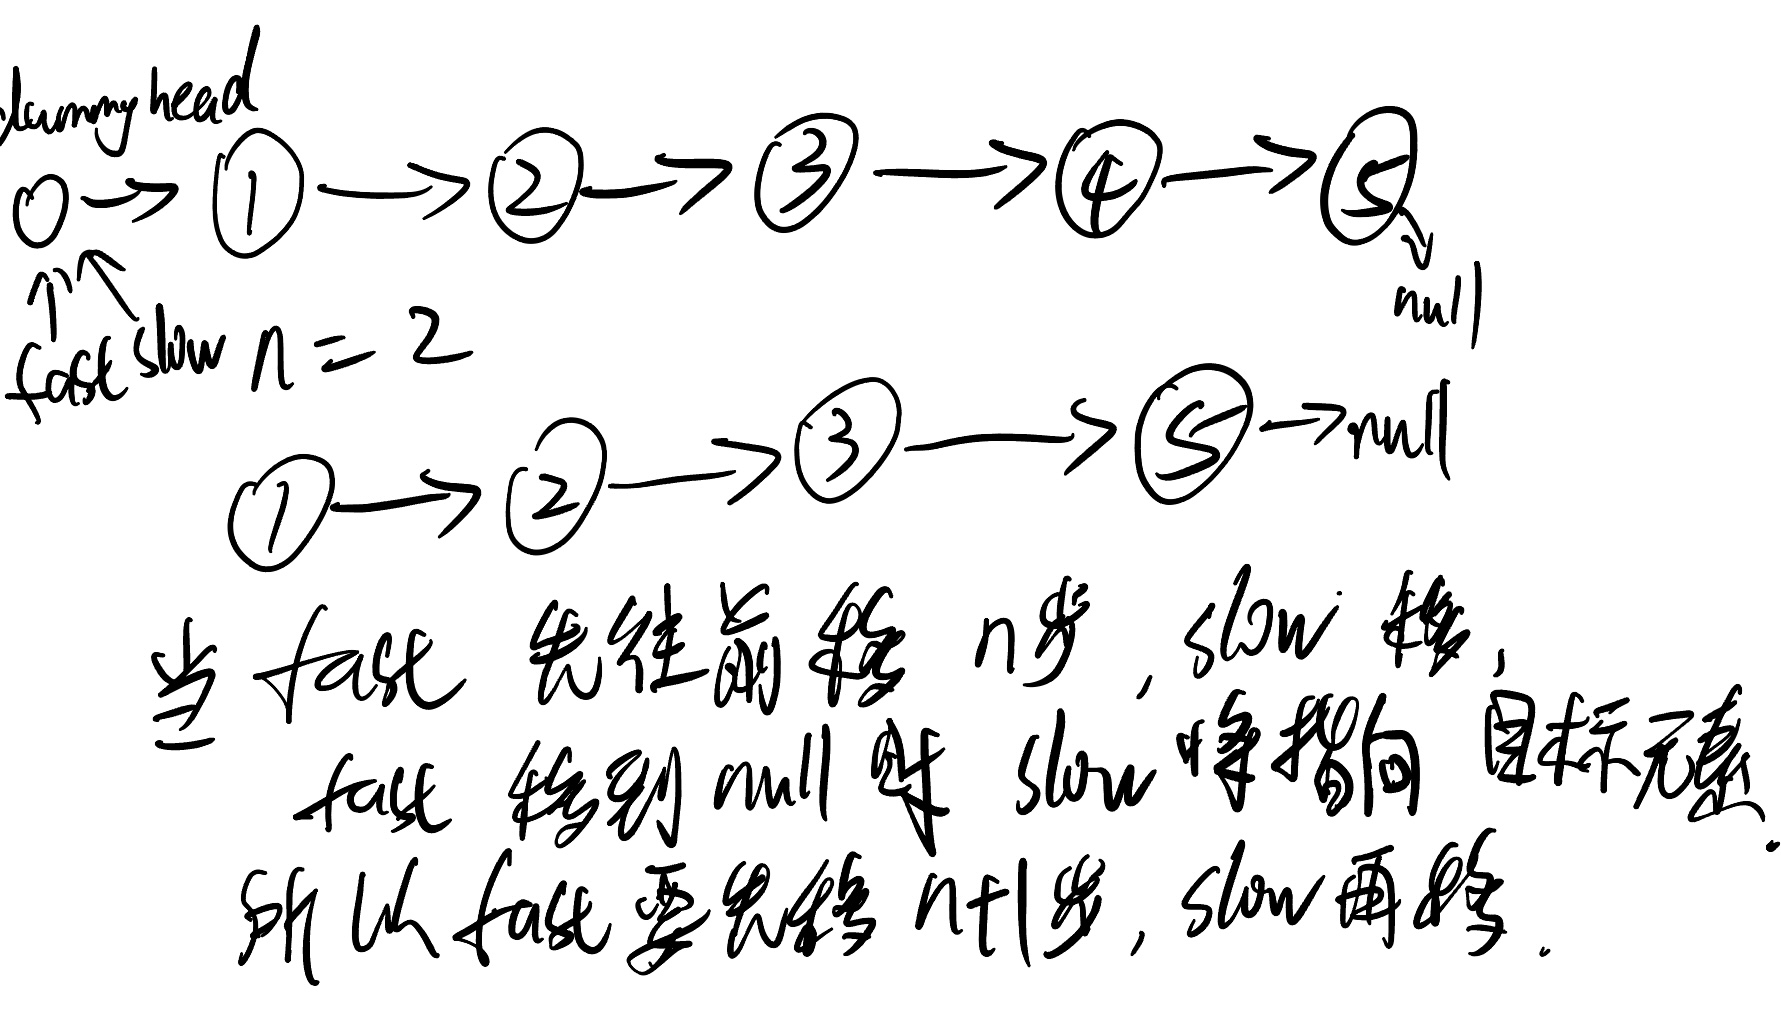 dummy head
0 → 1 → 2 → 3 → 4 → 5
null
fast slow n = 2
1 → 2 → 3 → 5 → null
当 fast 先往前移 n步, slow 移,
fast 移到 null 时 slow 将指向 目标元素.
所以 fast 要先移 n+1步, slow 再移.